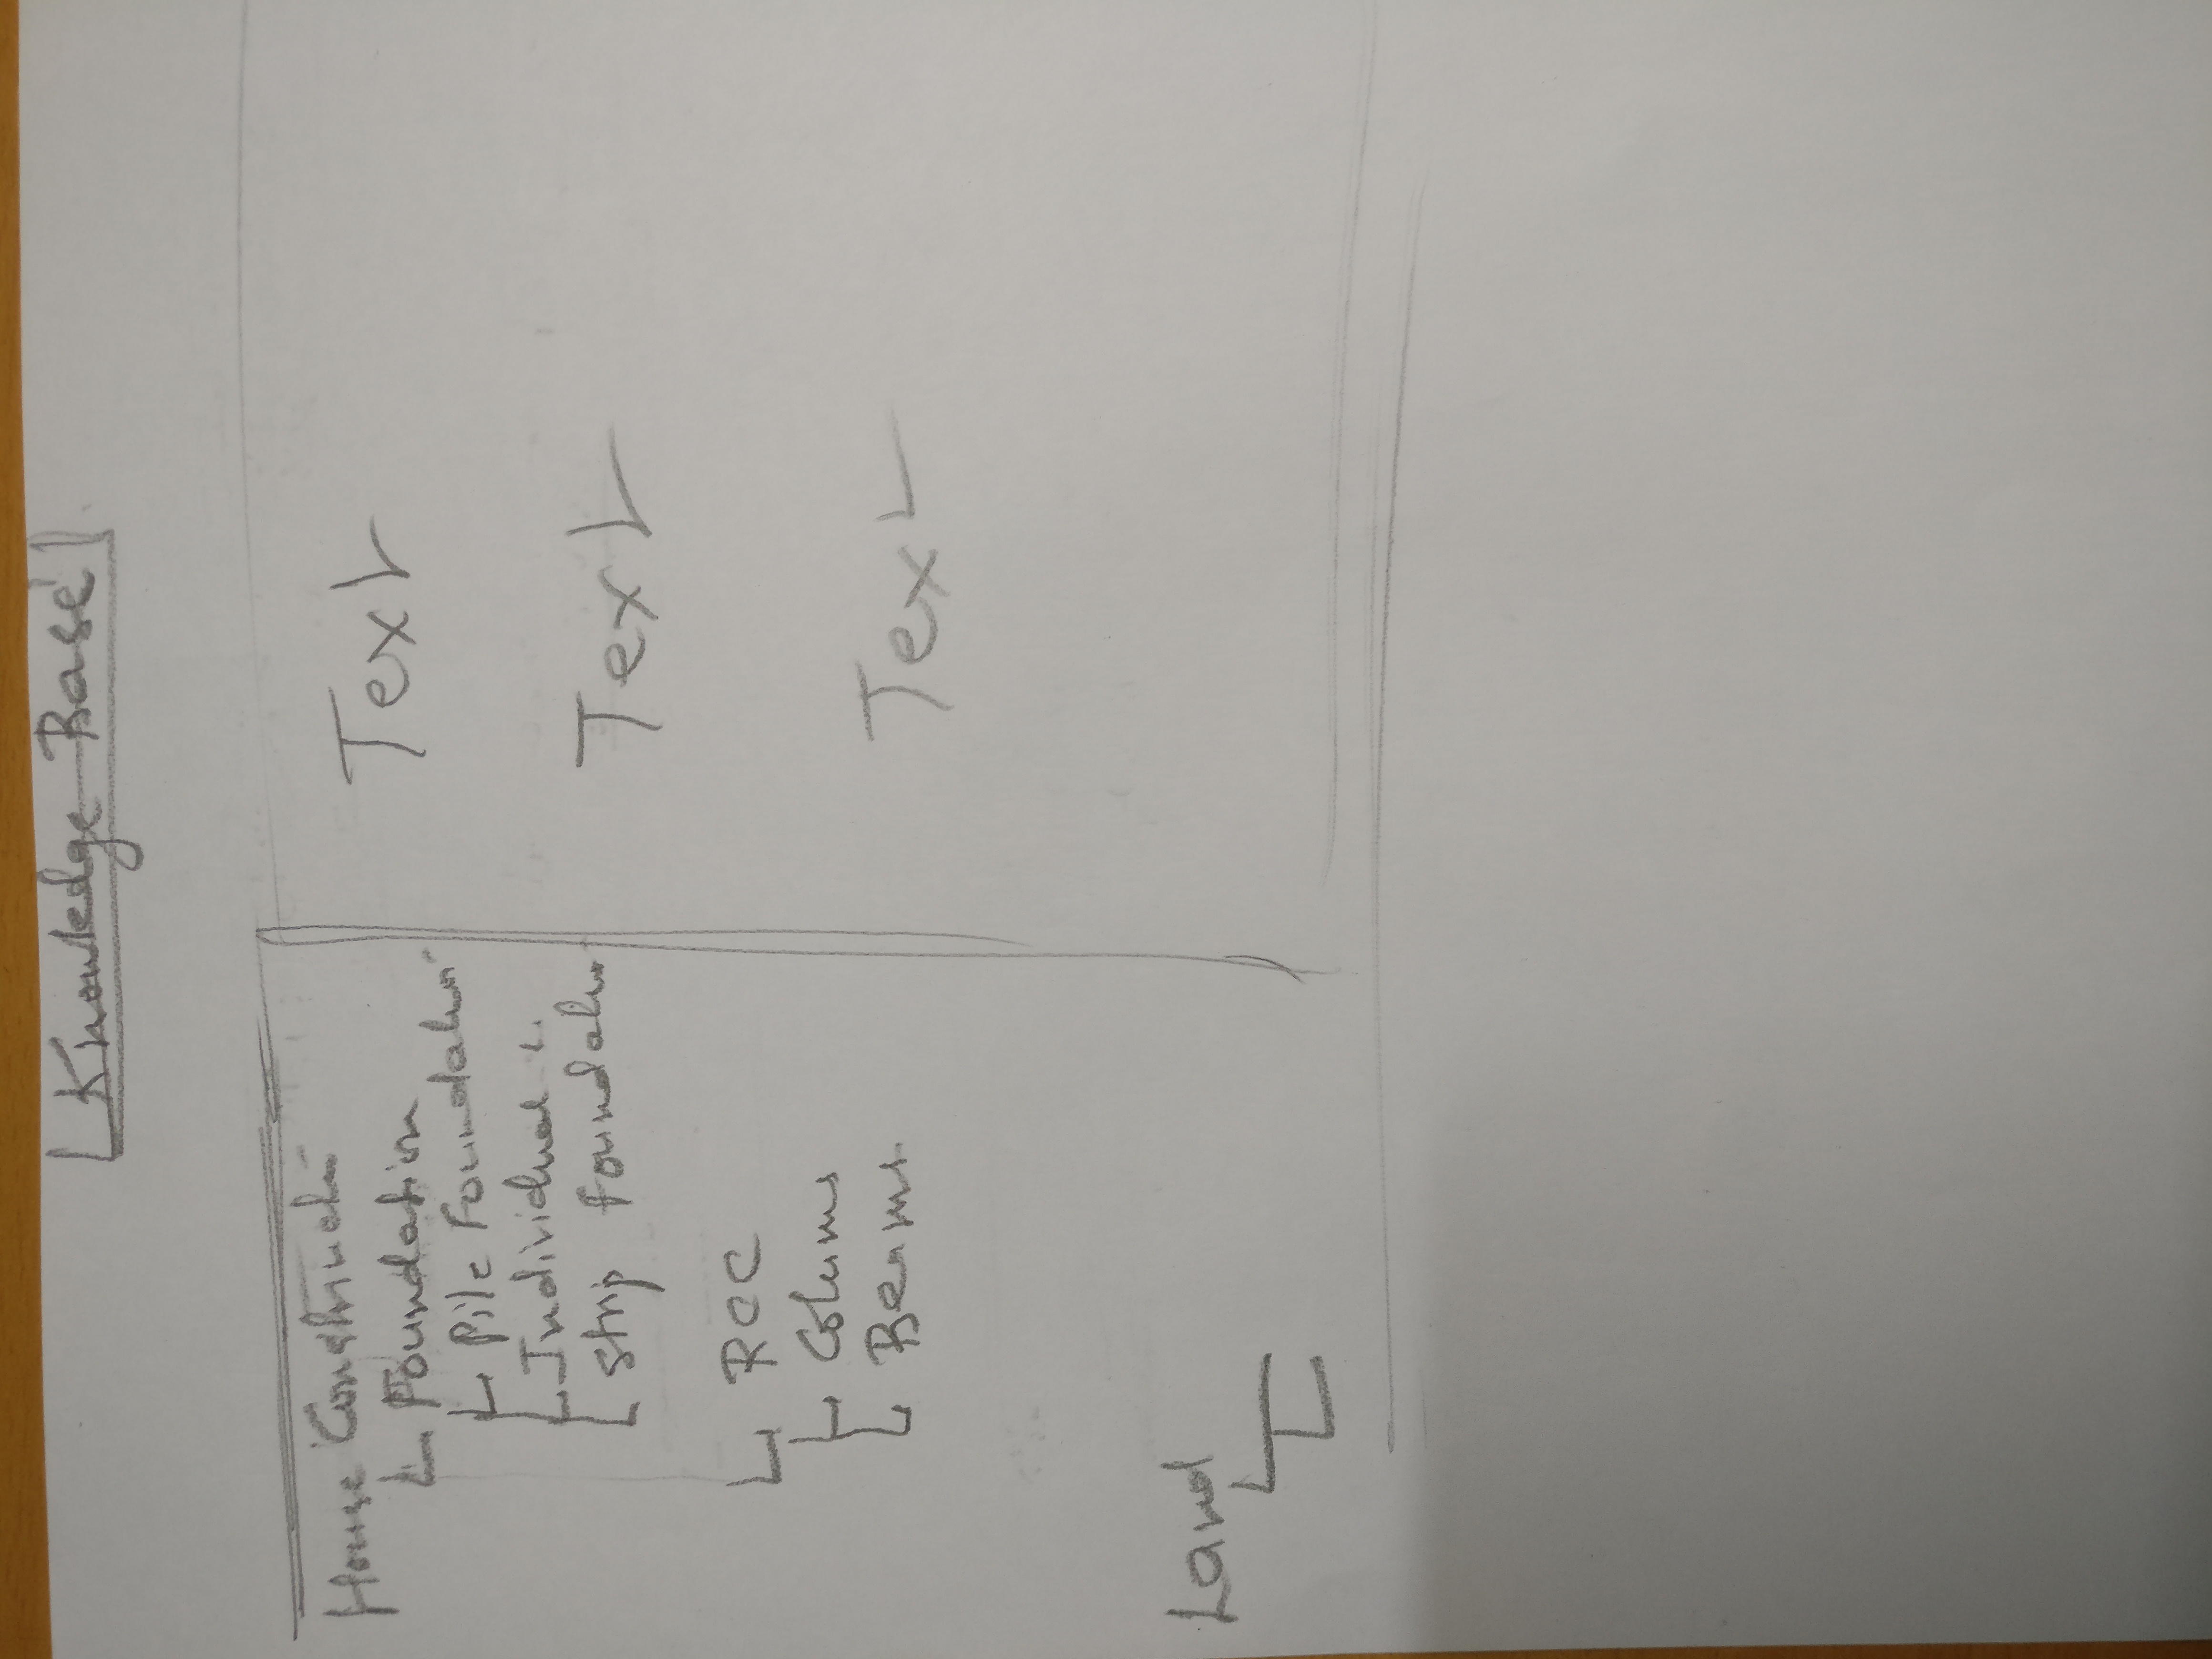 Knowledge Base
House Construction
Foundation
Pile Foundation
Individual "
Strip foundation
RCC
Colums
Beams.
Land
Text
Text
Text